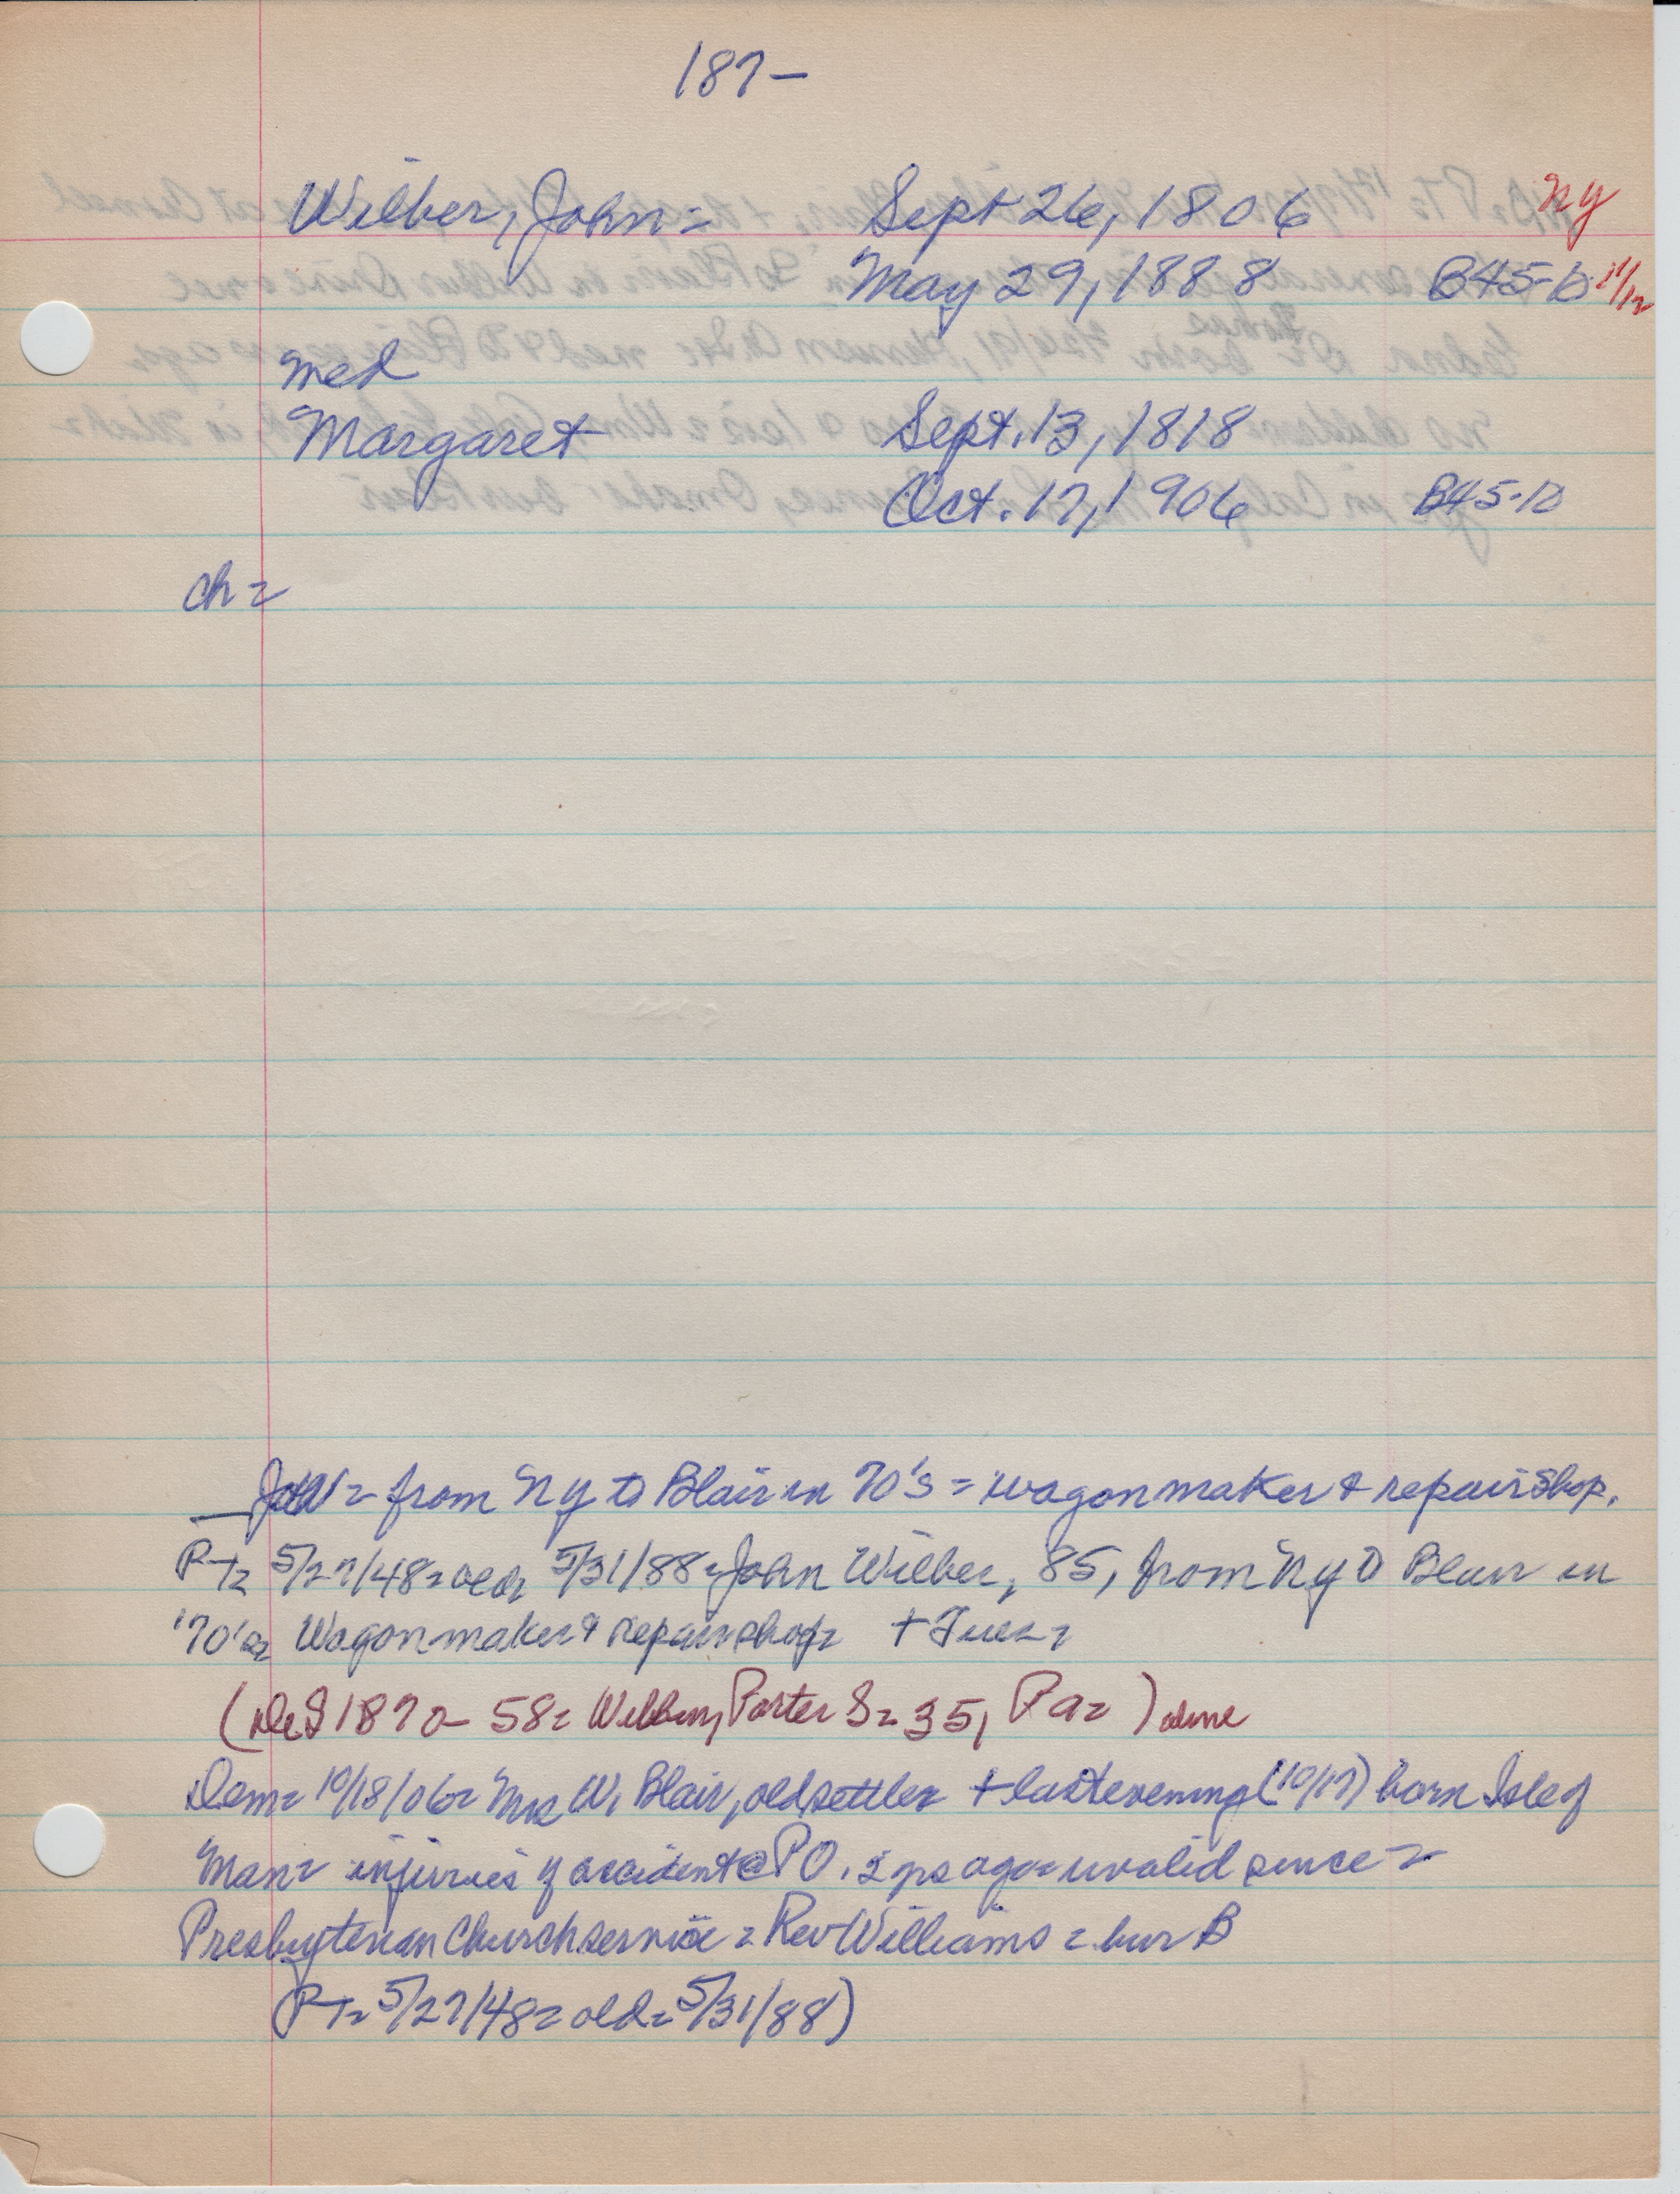 187-
Wilber, John = Sept 26, 1806 NY
May 29, 1888 B45-D 11/12
med
Margaret Sept. 13, 1818
Oct. 17, 1906 B45-D
ch =
from NY to Blair in 70's = wagonmaker & repair shop.
PT= 5/27/48= old 5/31/88= John Wilber, 85, from NY to Blair in
'70's= Wagonmaker & repair shop= + Tues=
1870- 58= Porter S= 35, Pa= ) alone
Dem= 10/18/06= Mrs W, Blair, old settler + last evening (10/17) born Isle of
Man= injuries of accident @ PO. 2 yrs ago= invalid since=
Presbyterian Church service = Rev Williams = bur B
(PT= 5/27/48= old= 5/31/88)